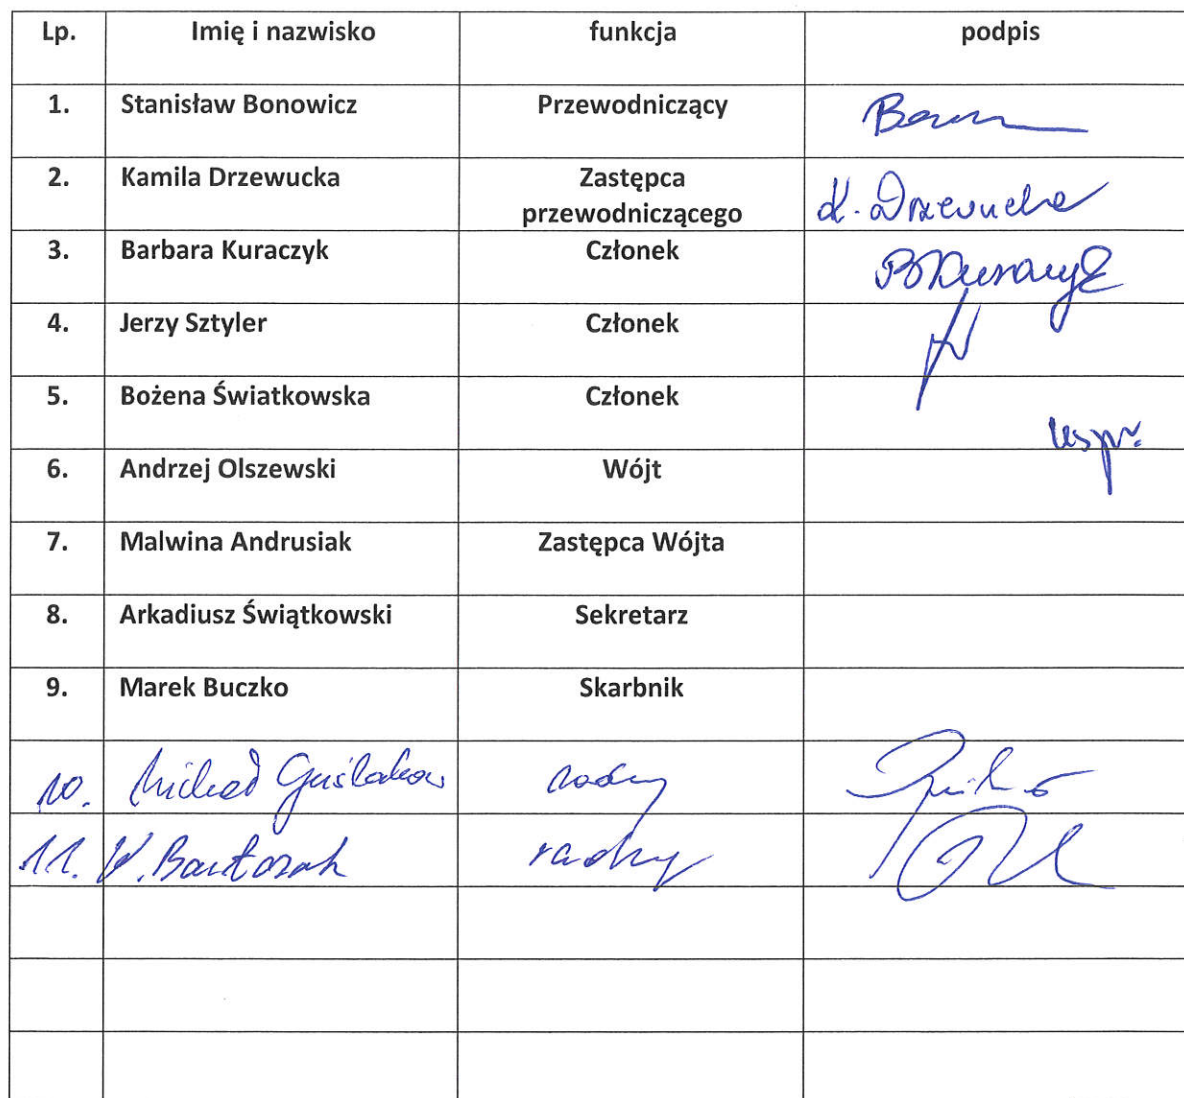 Lp. Imię i nazwisko funkcja podpis
1. Stanisław Bonowicz Przewodniczący
2. Kamila Drzewucka Zastępca
przewodniczącego K. Drzewucka
3. Barbara Kuraczyk Członek BKuraczyk
4. Jerzy Sztyler Członek
5. Bożena Światkowska Członek uspr.
6. Andrzej Olszewski Wójt
7. Malwina Andrusiak Zastępca Wójta
8. Arkadiusz Świątkowski Sekretarz
9. Marek Buczko Skarbnik
10. Michał radny
11. W. Bartosak radny